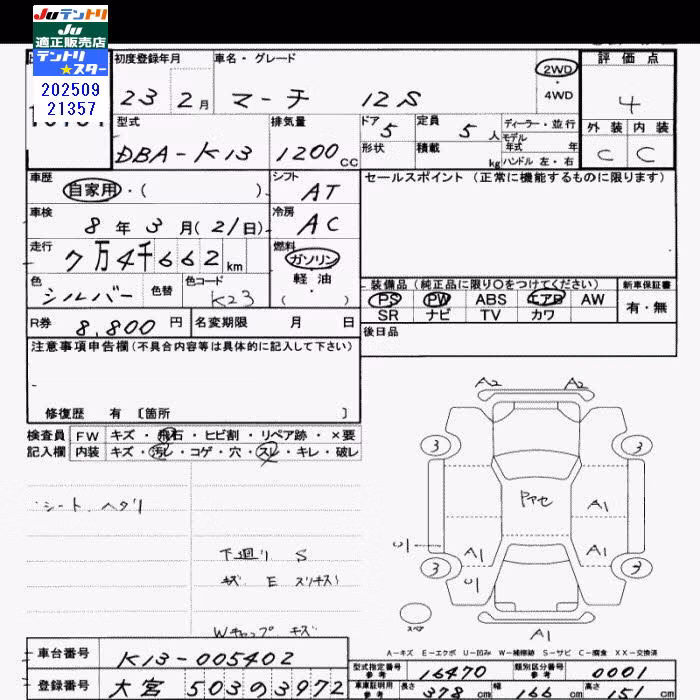 Juテントリ
Ju
適正販売店
テントリ
★スター
202509
21357
初度登録年月
車名・グレード
23 2月
マーチ 12S
2WD
・4WD
評価点
4
外装 内装
C C
型式
DBA-K13
排気量
1200cc
ドア 5
定員 5人
形状
積載 kg
ディーラー・並行
モデル年式 年
ハンドル 左・右
車歴
自家用・( )
シフト
AT
車検
8年3月(21日)
冷房
AC
走行
7万4千662km
燃料
ガソリン
軽油
・( )
色
シルバー
色替
色コード
K23
R券 8,800円
名変期限 月 日
セールスポイント(正常に機能するものに限ります)
装備品(純正品に限り〇をつけてください)
PS PW ABS エアB AW
SR ナビ TV カワ
新車保証書
有・無
後日品
注意事項申告欄(不具合内容等は具体的に記入して下さい)
修復歴 有 〔箇所 〕
検査員
記入欄
FW キズ・飛石・ヒビ割・リペア跡・×要
内装 キズ・汚レ・コゲ・穴・スレ・キレ・破レ
シート ヘタリ
下廻り S
キズ E スリキズ
Wキャップ キズ
A2 A2
3 3
アセ
A1
U1 A1 A1
3 U1 3
スペア
A1
A-キズ E-エクボ U-凹み W-補修跡 S-サビ C-腐食 XX-交換済
車台番号 K13-005402
登録番号 大宮 503 の 3972
型式指定番号 参考 16470
類別区分番号 参考 0001
車庫証明用 参考 長さ 378cm 幅 166cm 高さ 151cm